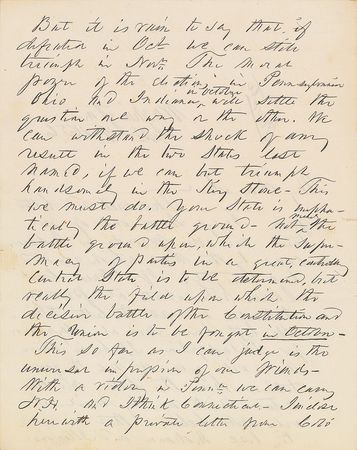 But it is vain to say that, if
defeated in Oct. we can still
triumph in Nov. The moral
power of the elections in Pennsylvania
Ohio and Indiana, in October will settle the
question one way or the other. We
can withstand the shock of any
result in the two States last
named, if we can but triumph
handsomely in the Key Stone - This
we must do. Your State is empha-
tically the battle ground - not merely the
battle ground upon, which the Supre-
macy of parties in a great, controlling
Central State is to be determined, but
really the field upon which the
decisive battle of the Constitution and
the Union is to be fought in October -
This so far as I can judge is the
universal impression of our friends -
With a victory in Penna. we can carry
N.Y. and I think Connecticut - I inclose
herewith a private letter from